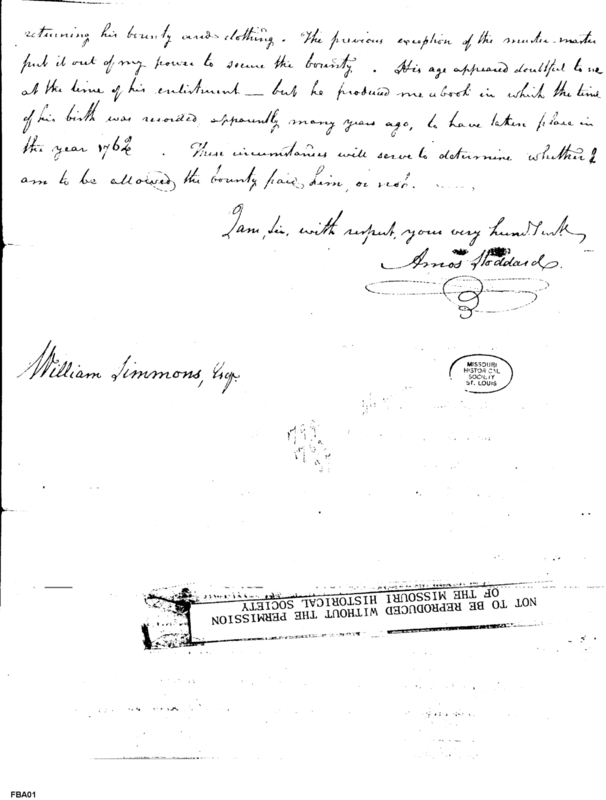 returning his bounty and clothing. The previous exception of the muster-master
put it out of my power to secure the bounty. His age appeared doubtful to me
at the time of his enlistment — but he produced me a book in which the time
of his birth was recorded, apparently many years ago, to have taken place in
the year 1762. These circumstances will serve to determine whether I
am to be allowed the bounty paid him, or not.
I am, Sir, with respect, your very
Amos Stoddard.
William Simmons, Esqr.
MISSOURI
HISTORICAL
SOCIETY
ST. LOUIS
NOT TO BE REPRODUCED WITHOUT THE PERMISSION
OF THE MISSOURI HISTORICAL SOCIETY
FBA01